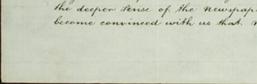 the deeper sense of the newspap
become convinced with us that